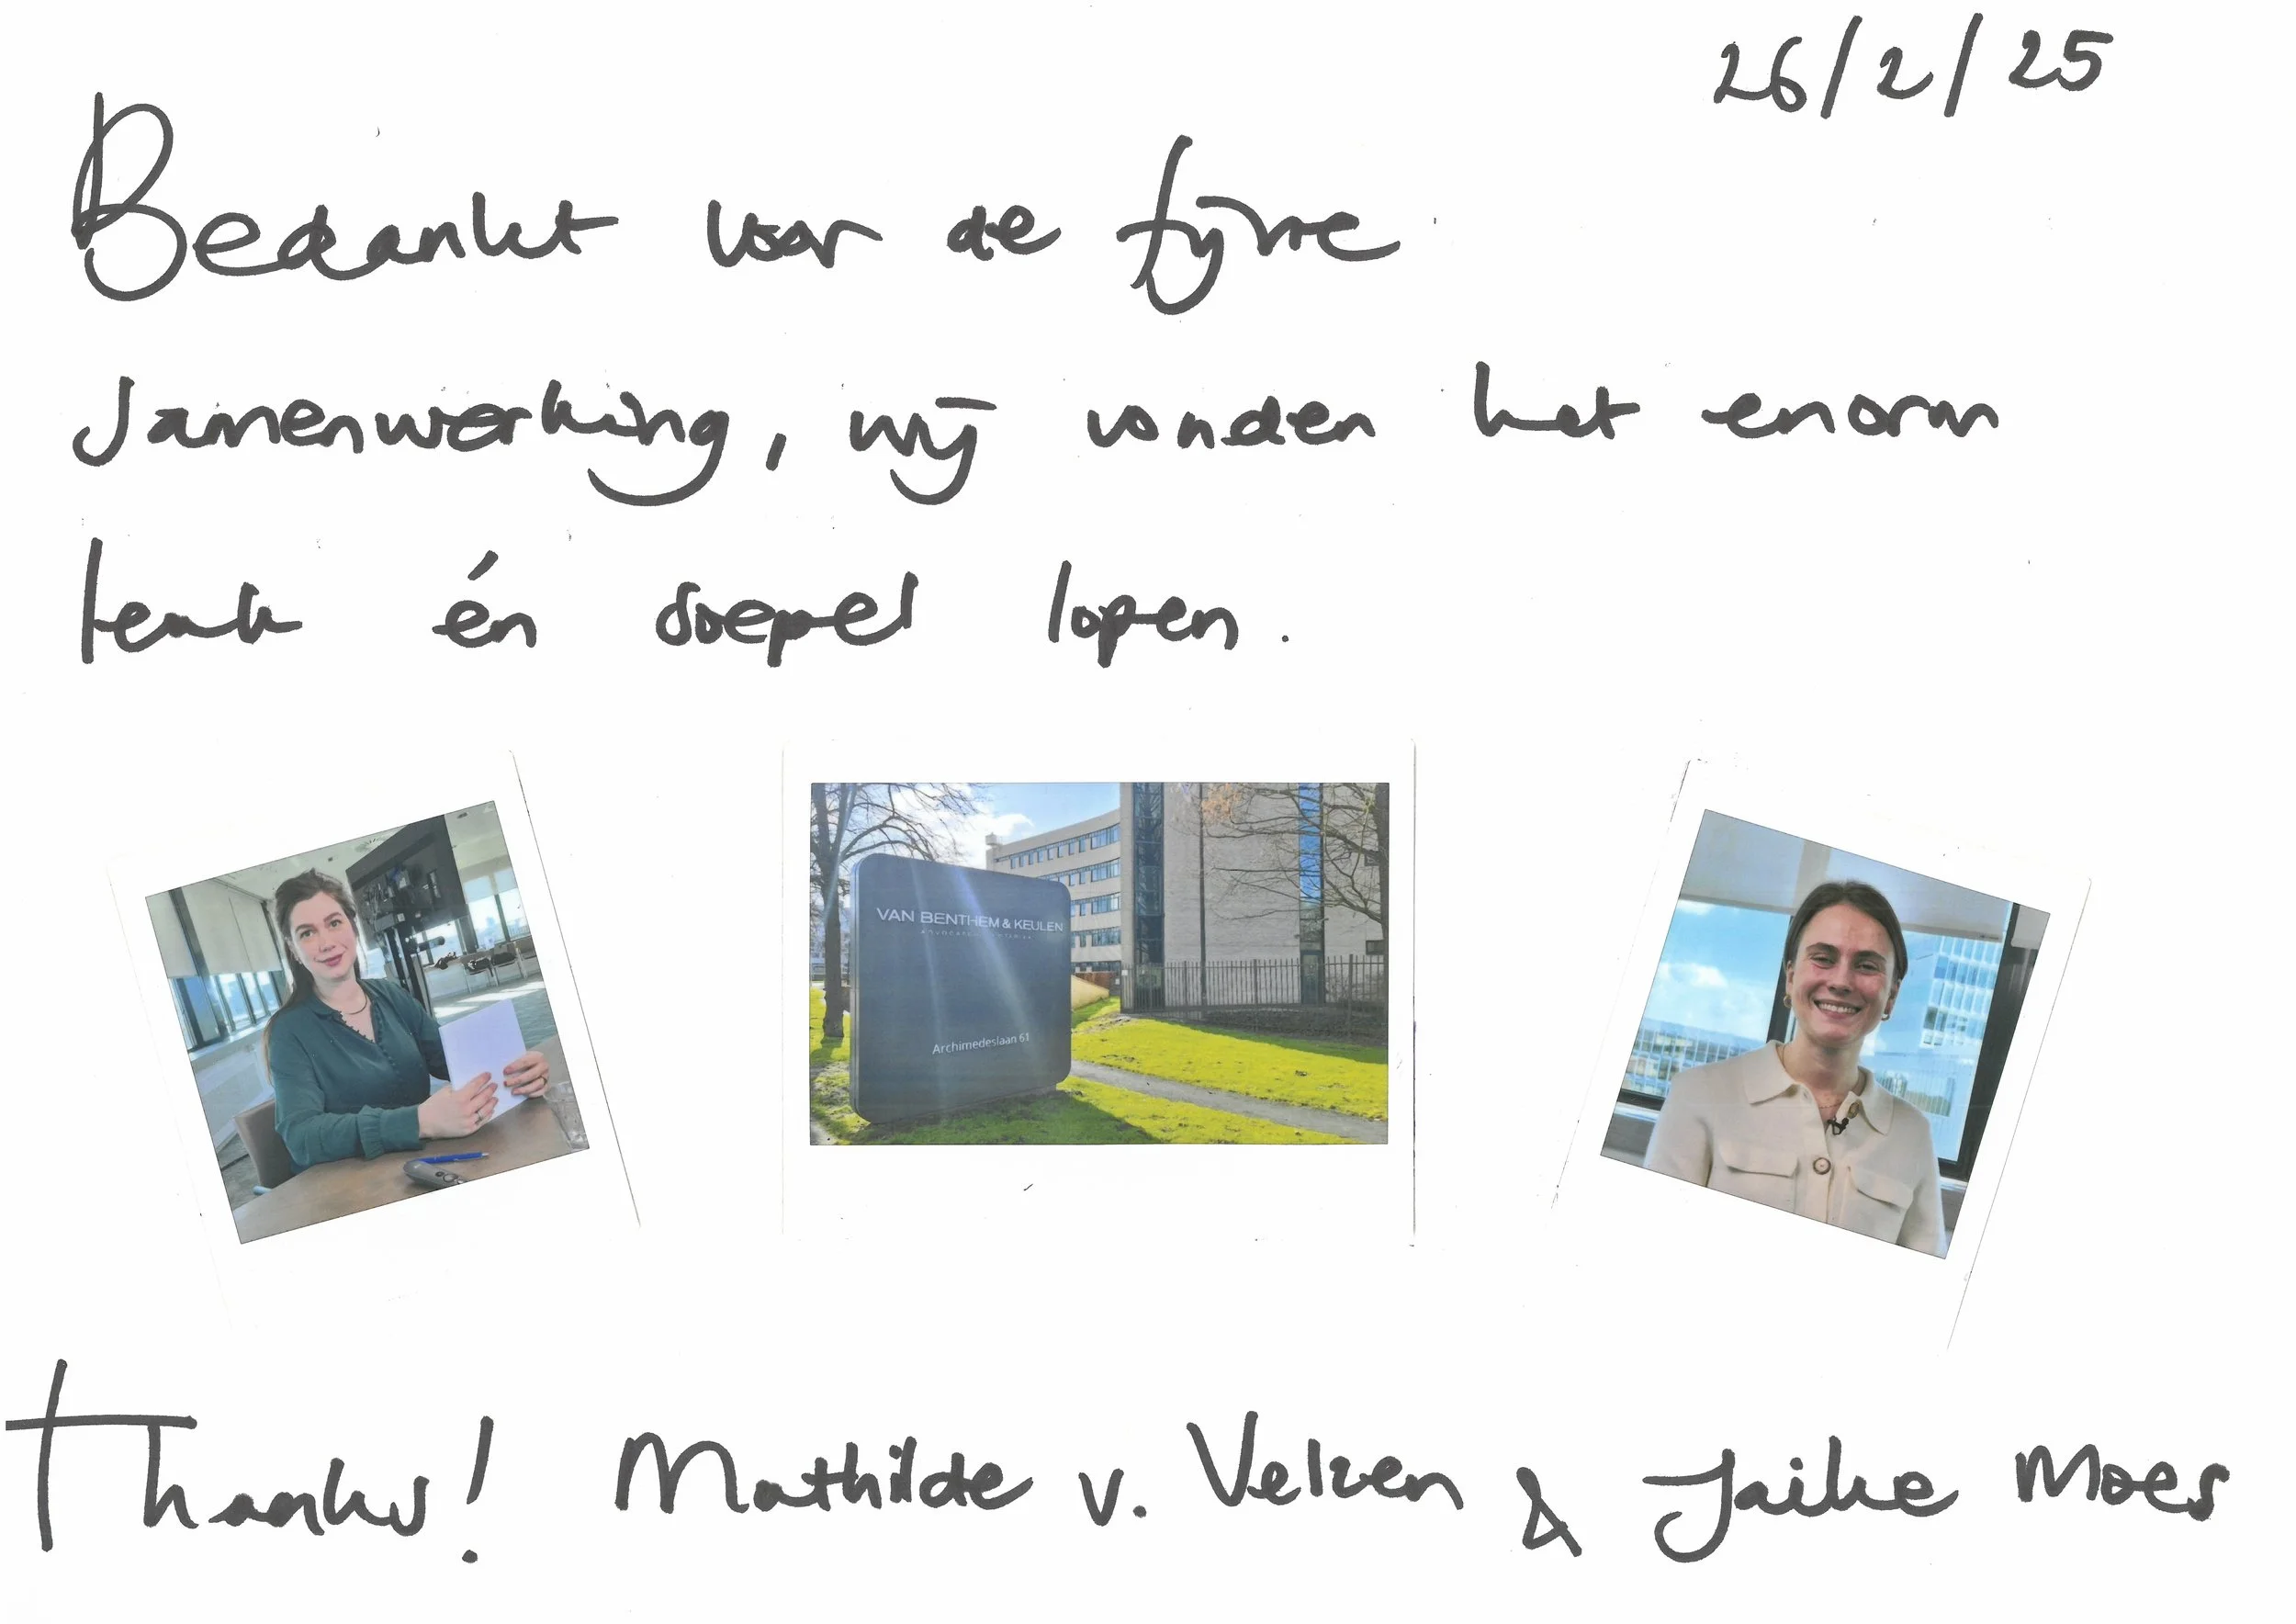 26/2/25
Bedankt voor de fijne
samenwerking, wij vonden het enorm
leuk én soepel lopen.
VAN BENTHEM & KEULEN
Archimedeslaan 61
Thanks! Mathilde v. Velzen & Jaike Moes